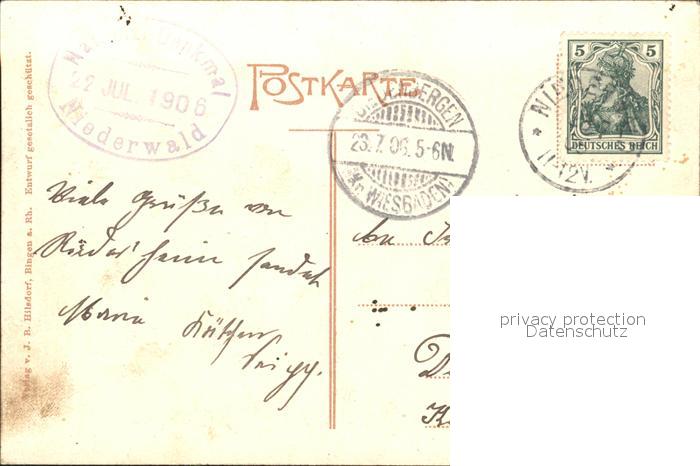 National Denkmal
22 JUL. 1906
Niederwald
POSTKARTE
23.7.06. 5-6N.
(Kr. WIESBADEN)
5 5
DEUTSCHES REICH
11-12V.
Verlag v. J. B. Hilsdorf, Bingen a. Rh. Entwurf gesetzlich geschützt.
Viele Grüße von
Rüdesheim sendet
Maria
An
privacy protection
Datenschutz